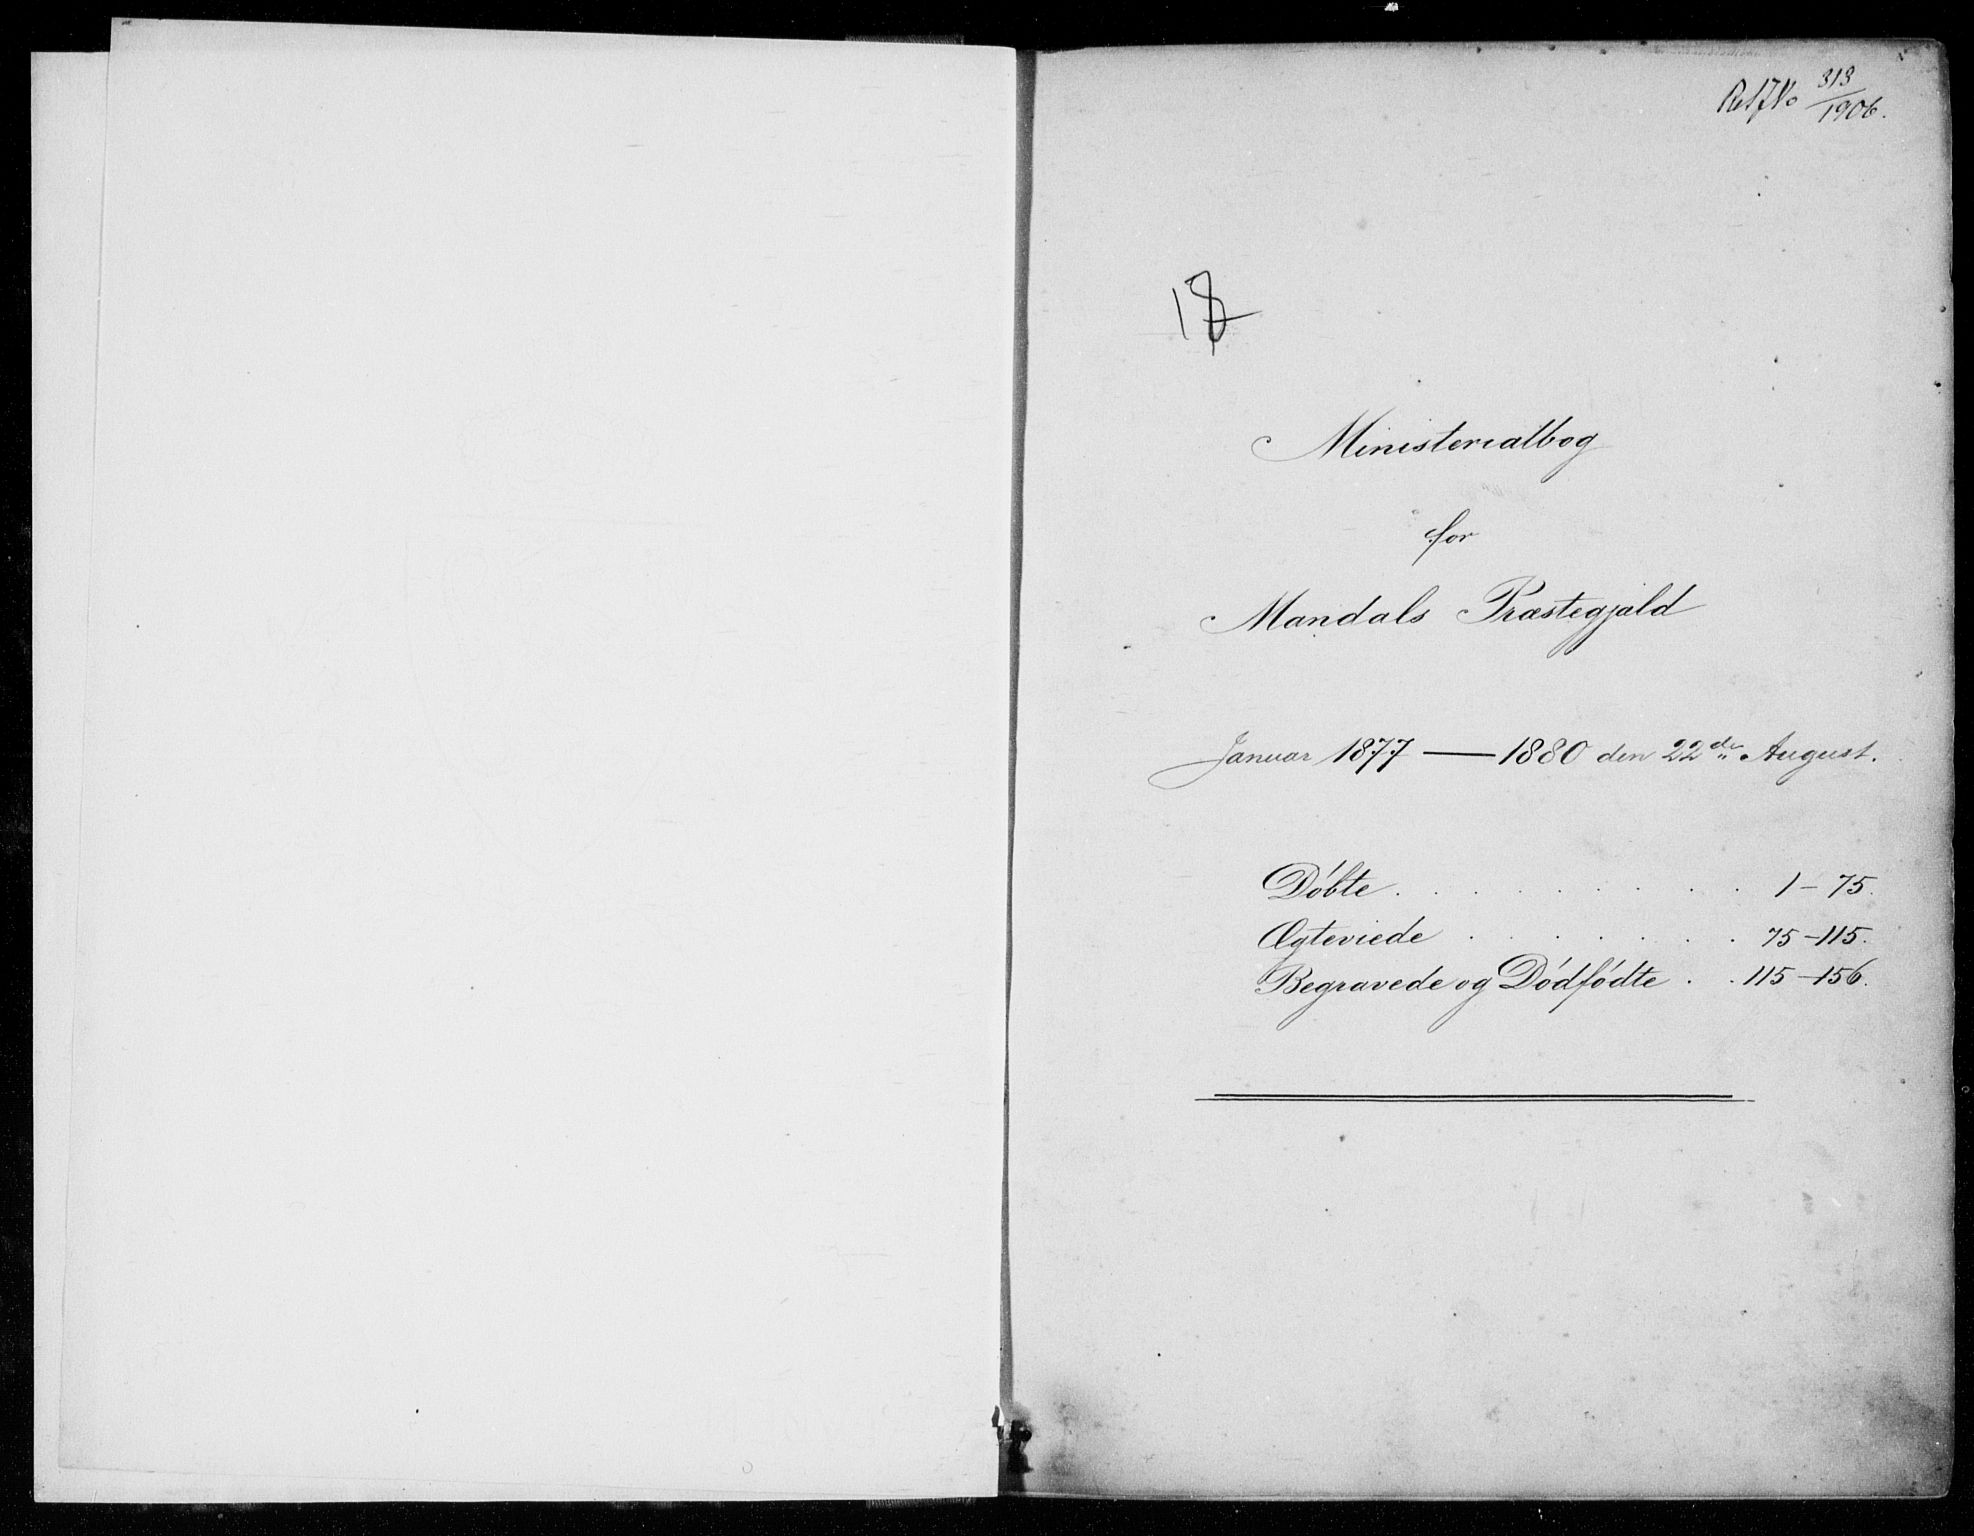 313
1906.
Ministerialbog
for
Mandals Præstegjæld
Januar 1877 — 1880 den 22de August.
Döbte . . . . . . . . . 1 – 75.
Ægteviede . . . . . . . 75 – 115.
Begravede og Dödfödte . . 115 – 156.